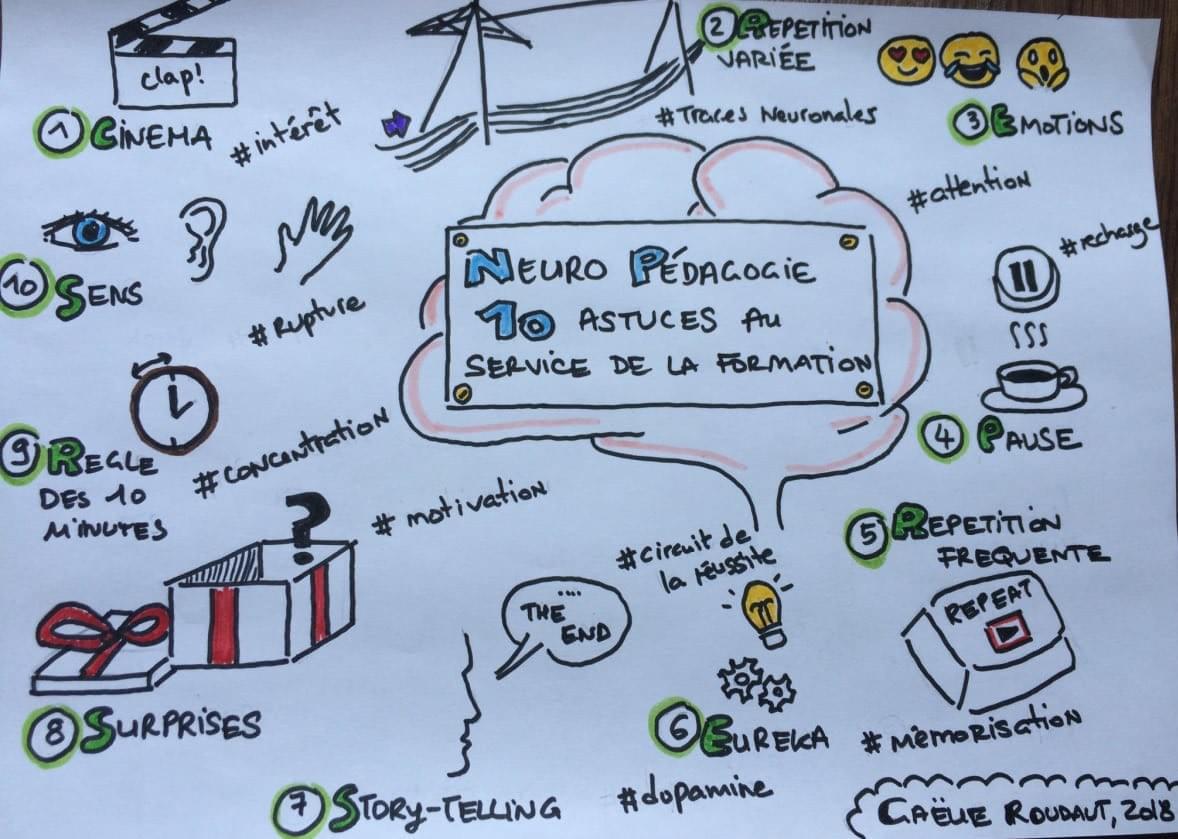 NEURO PÉDAGOGIE
10 ASTUCES AU
SERVICE DE LA FORMATION
clap!
1 CINEMA
#intérêt
2 REPETITION
VARIÉE
#Traces Neuronales
3 EMOTIONS
#attention
#recharge
4 PAUSE
5 REPETITION
FREQUENTE
REPEAT
#MÉMORISATION
#circuit de
la réussite
6 EUREKA
#dopamine
.... THE
END
7 STORY-TELLING
# motivation
?
8 SURPRISES
9 REGLE
DES 10
MINUTES
#CONCENTRATION
10 SENS
#Rupture
GAËLLE ROUDAUT, 2018